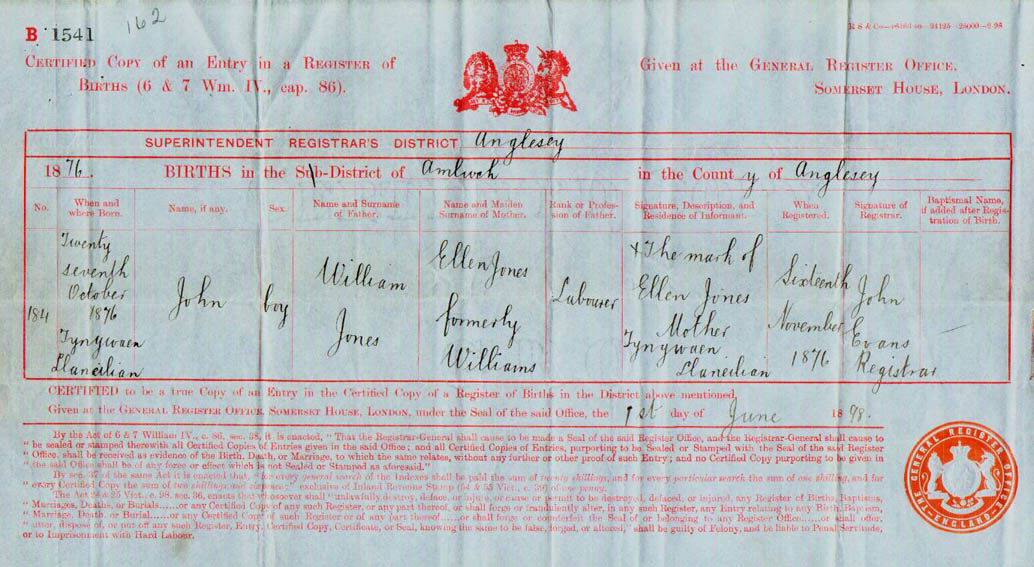 162
B 1541
CERTIFIED COPY of an ENTRY in a REGISTER of
BIRTHS (6 & 7 Wm. IV., cap. 86).
Given at the GENERAL REGISTER OFFICE,
SOMERSET HOUSE, LONDON.
SUPERINTENDENT REGISTRAR'S DISTRICT Anglesey
1876. BIRTHS in the Sub-District of Amlwch in the County of Anglesey
No.
When and
where Born.
Name, if any.
Sex.
Name and Surname
of Father.
Name and Maiden
Surname of Mother.
Rank or Profes-
sion of Father.
Signature, Description, and
Residence of Informant.
When
Registered.
Signature of
Registrar.
Baptismal Name,
if added after Regis-
tration of Birth.
184
Twenty
seventh
October
1876
Tynywaen
Llaneilian
John
boy
William
Jones
Ellen Jones
formerly
Williams
Labourer
x The mark of
Ellen Jones
Mother
Tynywaen
Llaneilian
Sixteenth
November
1876
John
Evans
Registrar
CERTIFIED to be a true Copy of an Entry in the Certified Copy of a Register of Births in the District above mentioned.
Given at the GENERAL REGISTER OFFICE, SOMERSET HOUSE, LONDON, under the Seal of the said Office, the 1st day of June 1898.
By the Act of 6 & 7 William IV., c. 86, sec. 38, it is enacted, "That the Registrar-General shall cause to be made a Seal of the said Register Office, and the Registrar-General shall cause to
"be sealed or stamped therewith all Certified Copies of Entries given in the said Office; and all Certified Copies of Entries, purporting to be Sealed or Stamped with the Seal of the said Register
"Office, shall be received as evidence of the Birth, Death, or Marriage, to which the same relates, without any further or other proof of such Entry; and no Certified Copy purporting to be given in
"the said Office shall be of any force or effect which is not Sealed or Stamped as aforesaid."
By sec. 37 of the same Act it is enacted that, "for every general search of the Indexes shall be paid the sum of twenty shillings, and for every particular search the sum of one shilling, and for
"every Certified Copy the sum of two shillings and sixpence," exclusive of Inland Revenue Stamp of one penny.
The Act 24 & 25 Vict. c. 98. sec. 36, enacts that whosoever shall "unlawfully destroy, deface, or injure, or cause or permit to be destroyed, defaced, or injured, any Register of Births, Baptisms,
"Marriages, Deaths, or Burials......or any Certified Copy of any such Register, or any part thereof, or shall forge or fraudulently alter, in any such Register, any Entry relating to any Birth, Baptism,
"Marriage, Death, or Burial,......or any Certified Copy of such Register or of any part thereof......or shall forge or counterfeit the Seal of or belonging to any Register Office......or shall offer,
"utter, dispose of, or put off any such Register, Entry, Certified Copy, Certificate, or Seal, knowing the same to be false, forged, or altered," shall be guilty of Felony, and be liable to Penal Servitude,
or to Imprisonment with Hard Labour.
THE GENERAL REGISTER OFFICE
ENGLAND